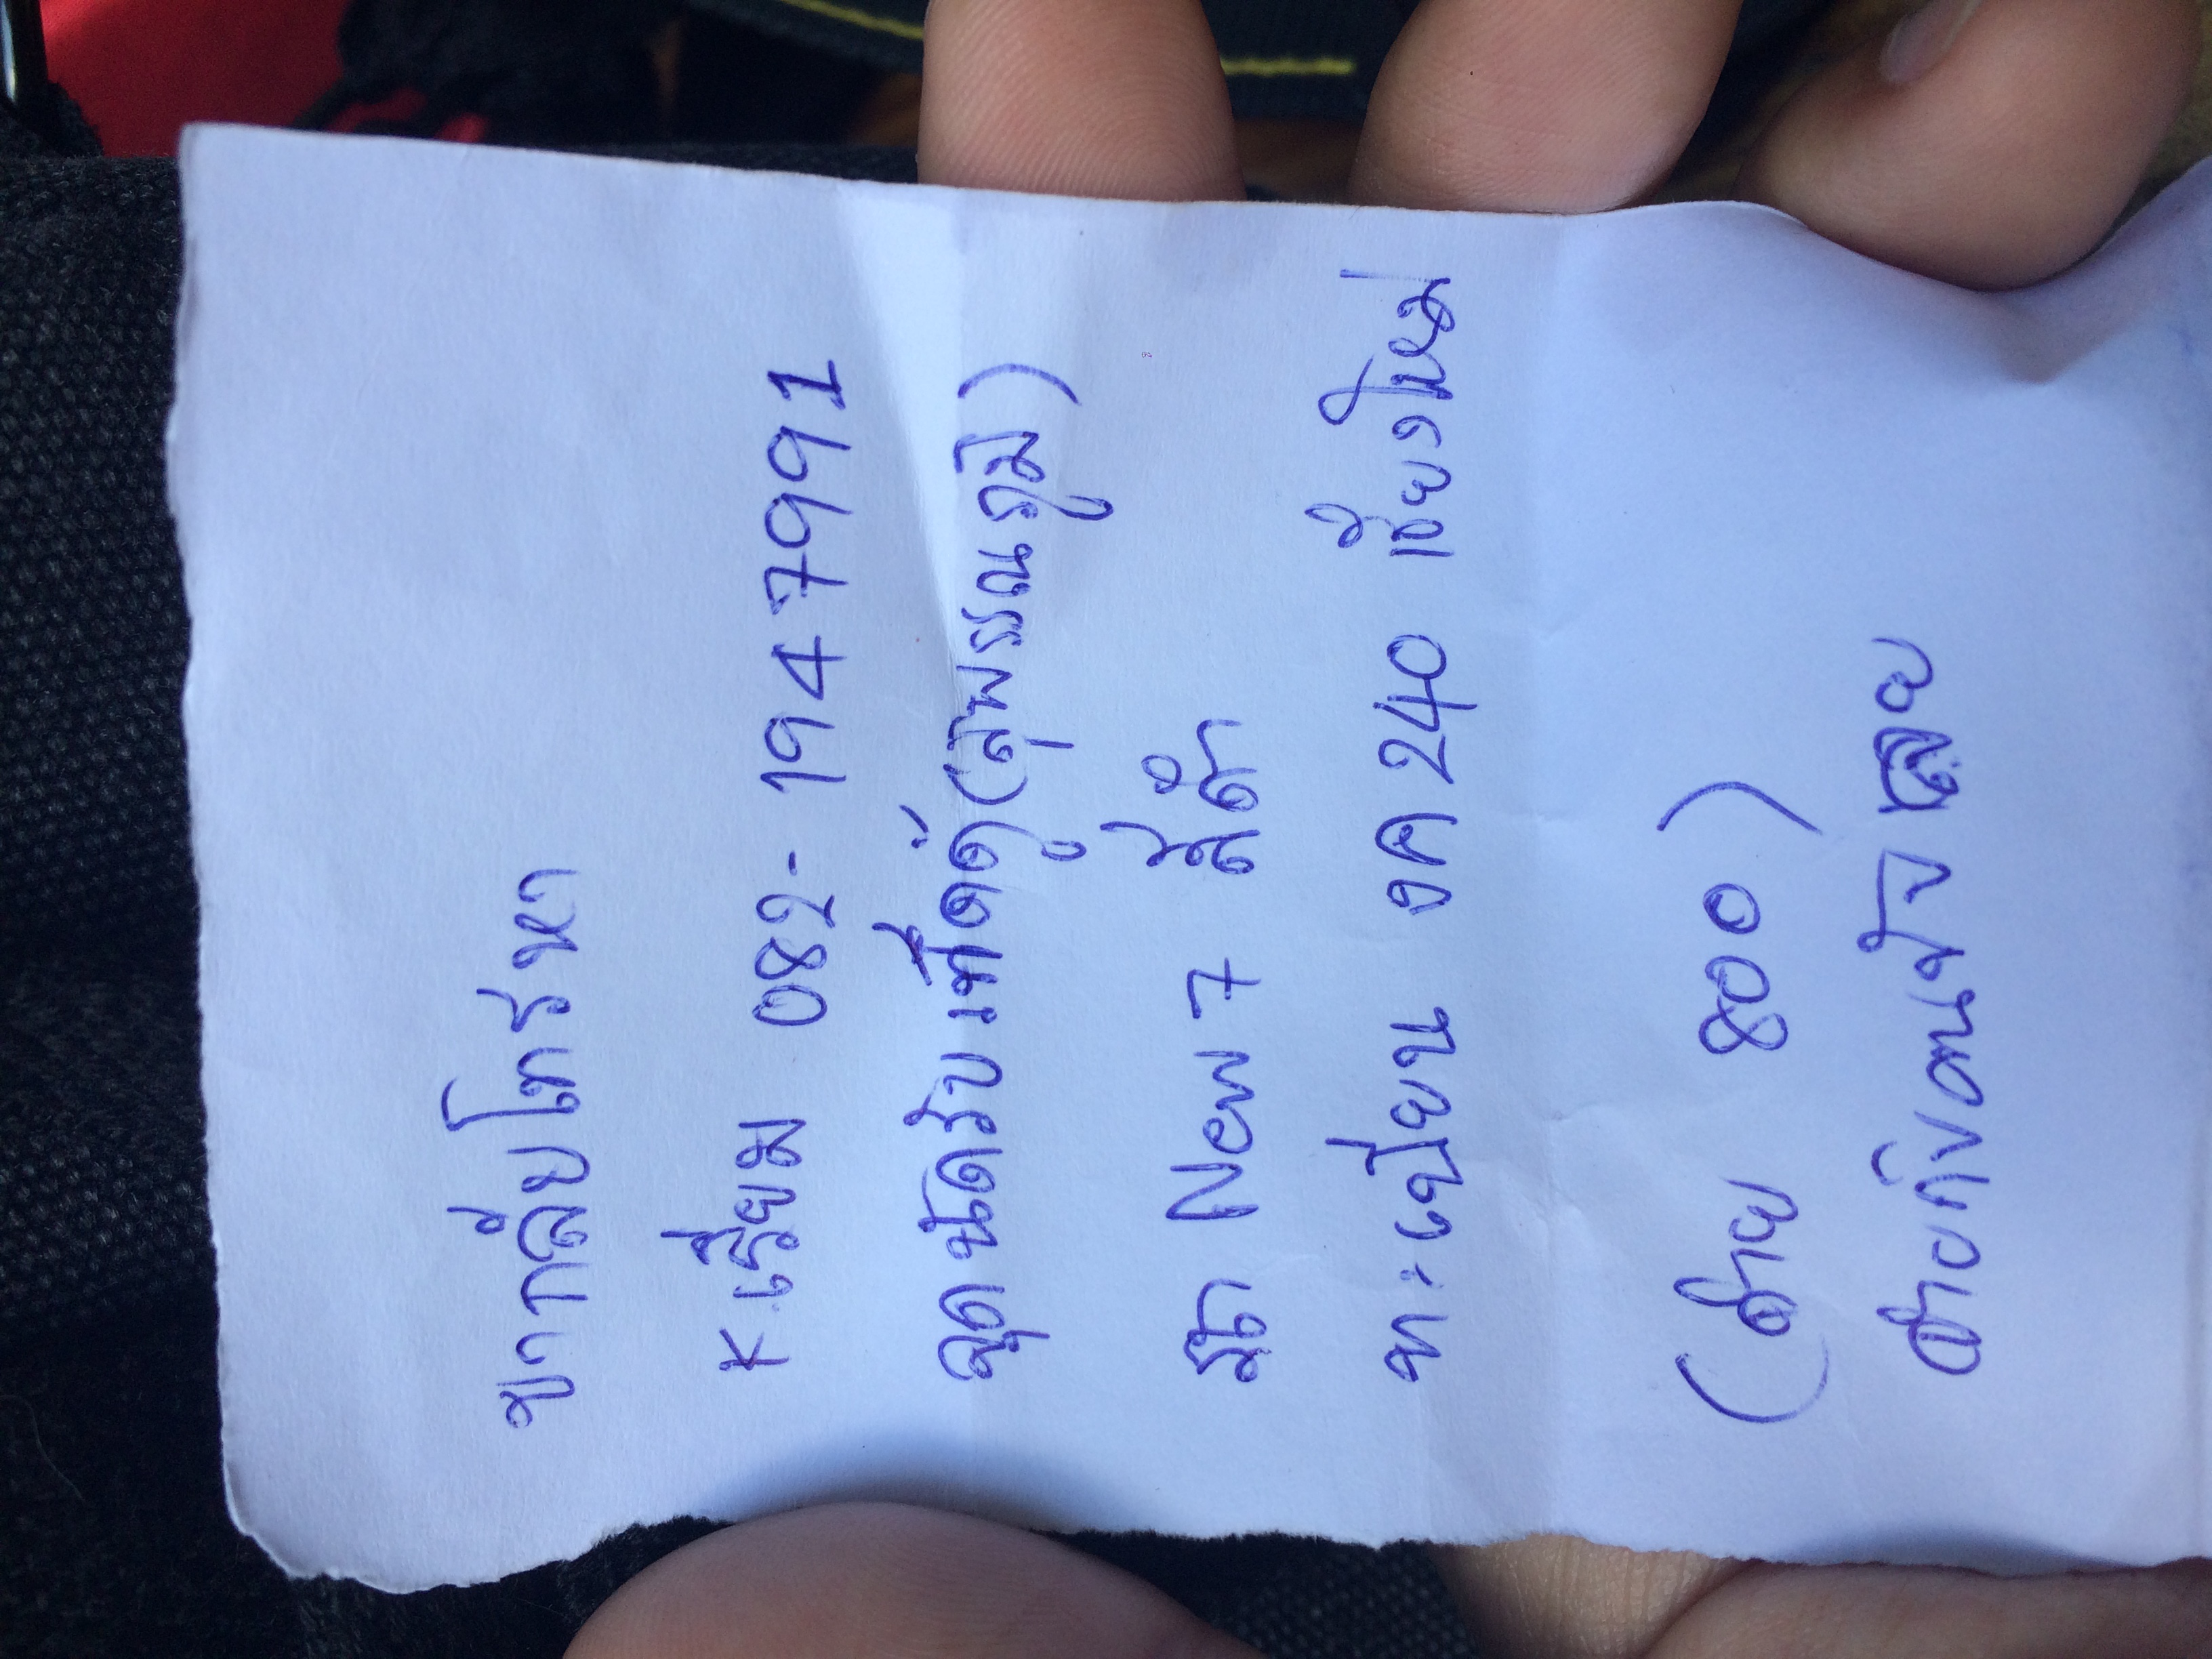 ขากลับโทรหา
K เรียม 082-1947991
จุดนัดรับ (สุพรรณภูมิ)
รถ New 7 สีดำ
ทะเบียน งค 240 เชียงใหม่
(จ่าย 800)
จ่ายกับคนขับเลย